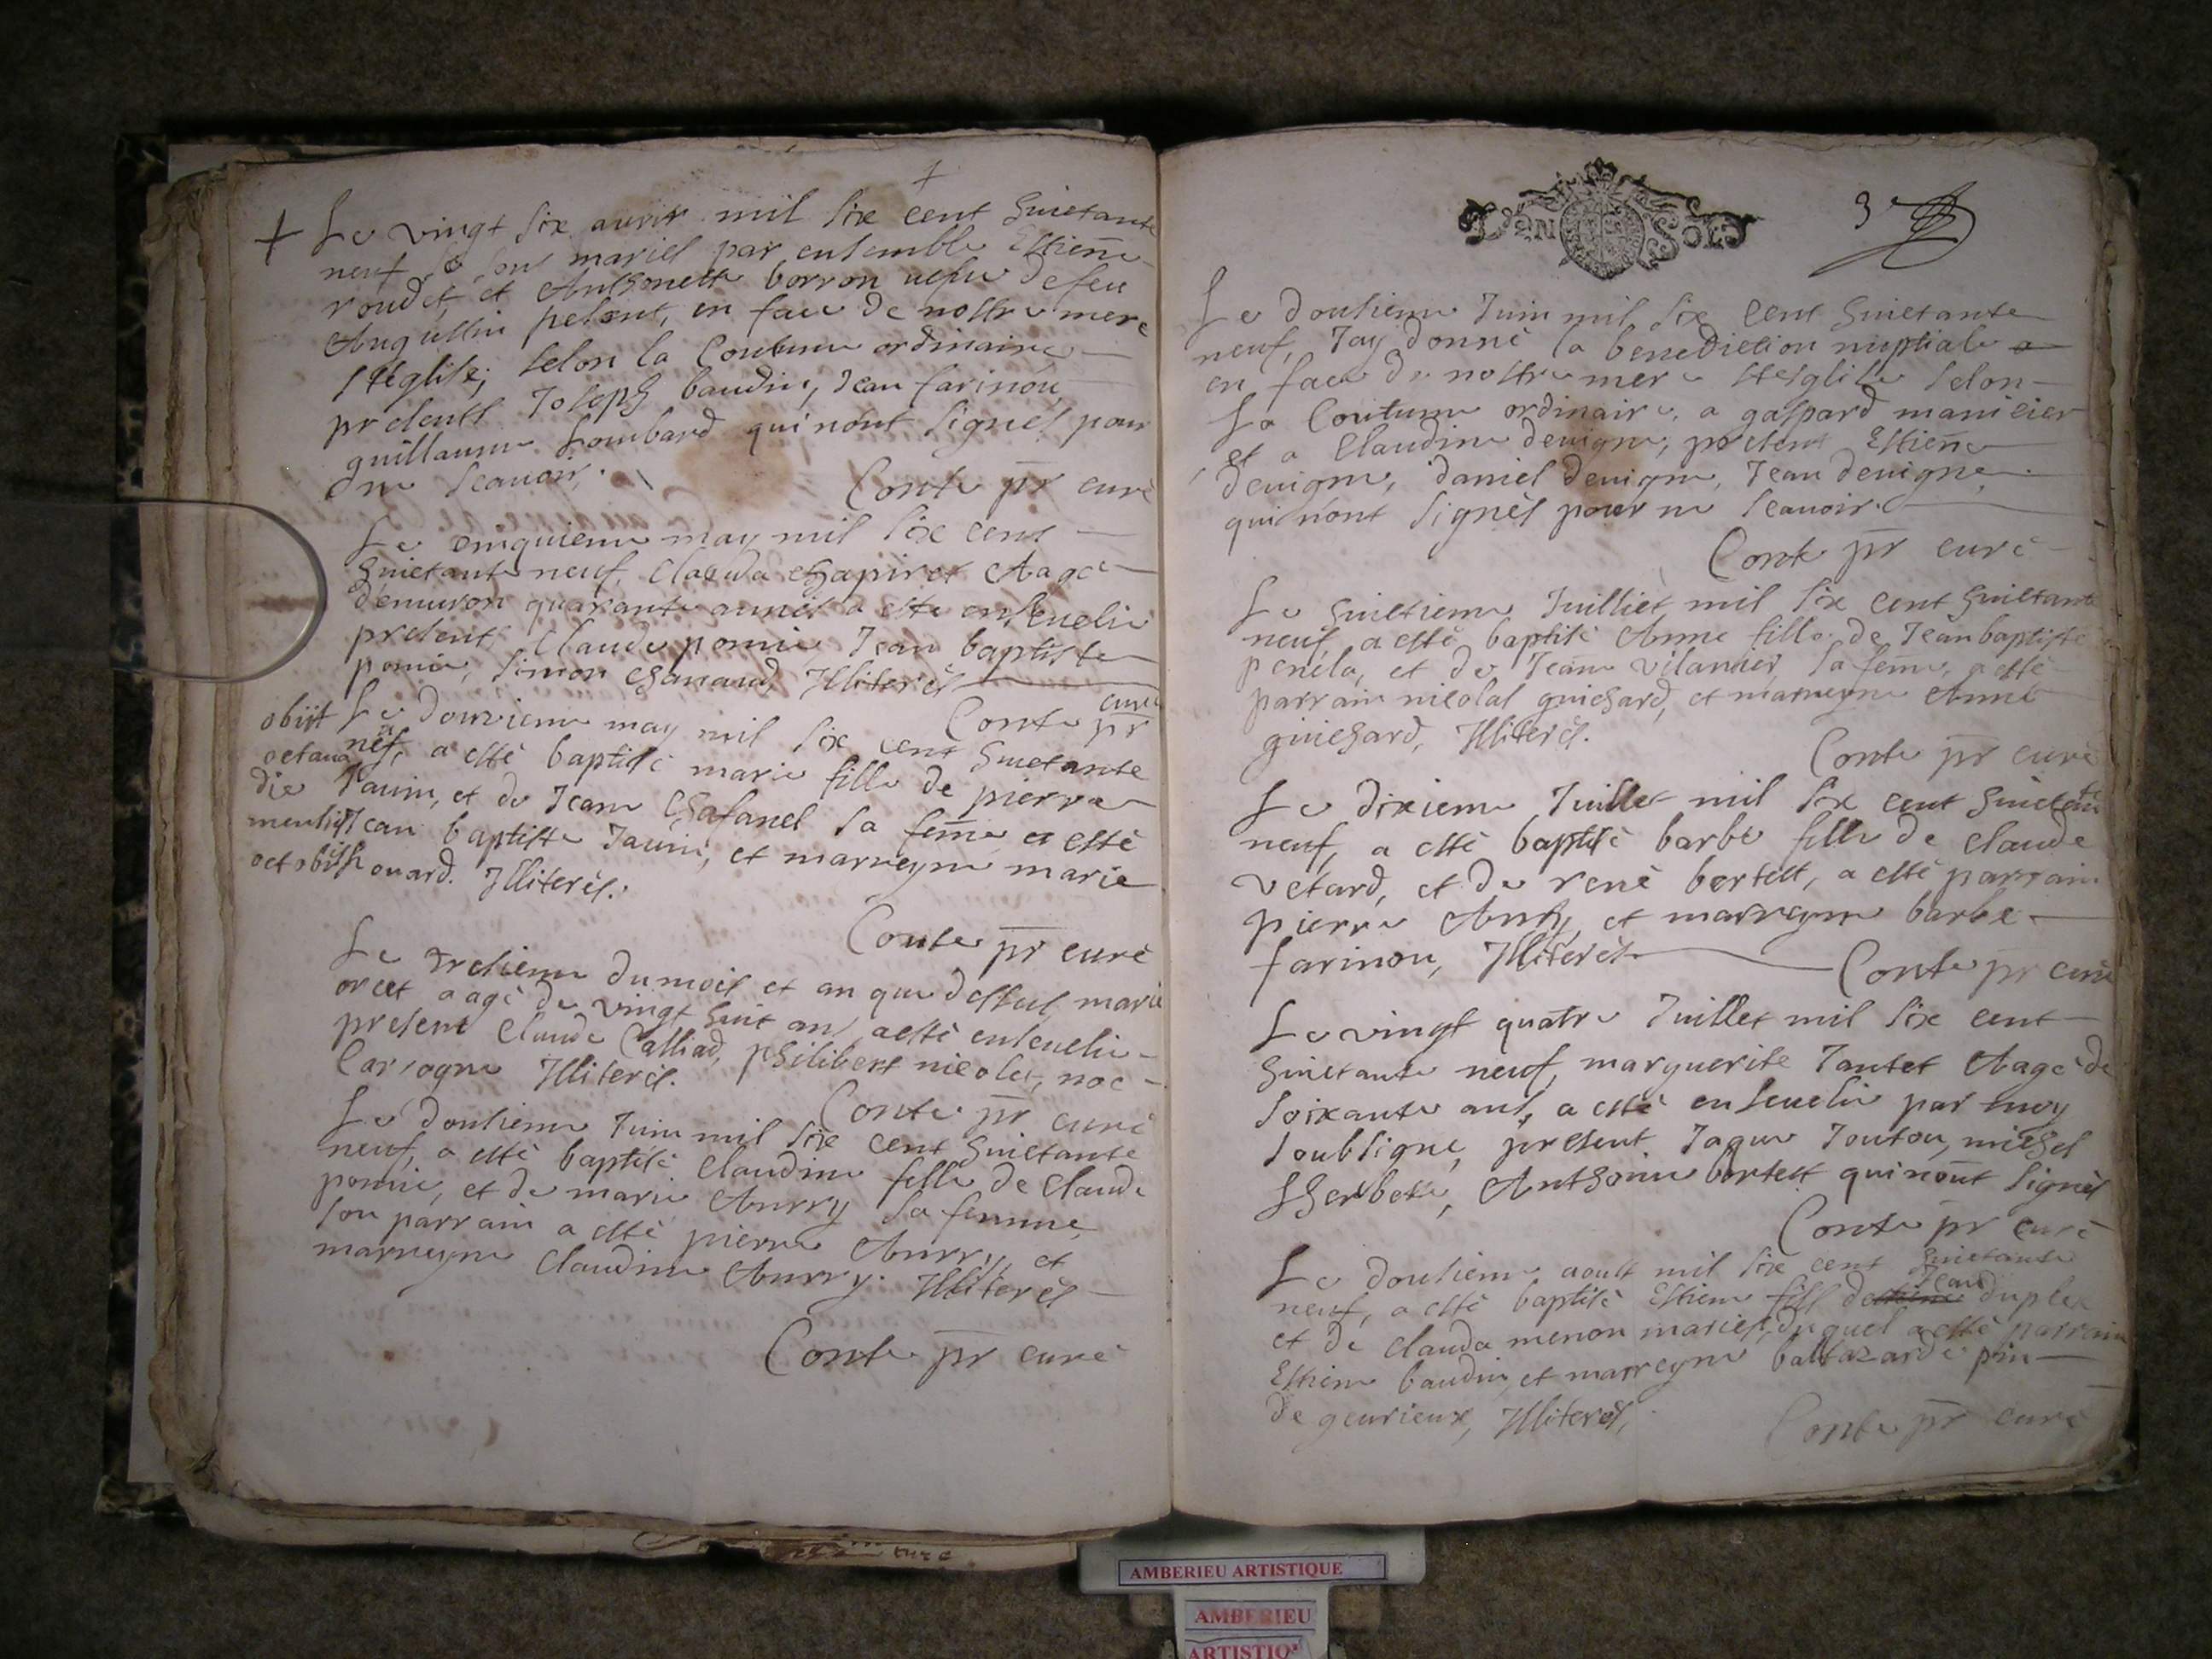 Le vingt six avrir mil six cent huictante
neuf se sont mariés par ensemble Estienne
roudet, et Anthonette borron vefve de feu
Augustin pelont, en face de nostre mere
Ste église, selon la Coutume ordinaire
presents Joseph baudin, Jean farinou,
guillaume Lombard qui n'ont signés pour
ne scavoir.
Conte pr curé
Le cinquieme may mil six cent
huictante neuf, Clauda chapirot Aagé
denviron quarante année a esté ensevelie
présents Claude pomie, Jean baptiste
pomie, simon chanard, Illiterés
Conte pr curé
Le douzieme may mil six cent huictante
neuf, a esté baptisé marie fille de pierre
Jauin, et de Jeane chafanel sa feme, a esté
Jean baptiste Jauin, et marreyne marie
ouard. Illiterés.
obiit
octava
die
mensis
octobris
Conte pr curé
Le tresieme du mois et an que dessus, marie
orset aagé de vingt huit ans, a esté ensevelie
present Claude Calliad, philibert nicolet, noe
Carrogne Illiterés.
Conte pr curé
Le dousieme Juin mil six cent huictante
neuf, a esté baptisé Claudine fille de Claude
pomie, et de marie Aurry sa femme,
son parrain a esté pierre Aurry, et
marreyne Claudine Aurry. Illiterés
Conte pr curé
DEUX SOLS
3e
Le dousieme Juin mil six cent huictante
neuf, Jay donné la benediction nuptiale a
en face de nostre mere Ste esglise selon
La Coutume ordinaire, a gaspard manicier
et a Claudine devigne, présent Estiene
devigne, daniel devigne, Jean devigne
qui n'ont signés pour ne scavoir.
Conte pr curé
Le huictieme Juilliet mil six cent huictante
neuf, a esté baptisé Anne fille de Jean baptiste
penela, et de Jeane vilanier, sa feme, a esté
parrain nicolas guichard, et marreyne Anne
guichard, Illiterés.
Conte pr curé
Le dixieme Juillet mil six cent huictante
neuf, a esté baptisé barbe fille de claude
vetard, et de rené bertett, a esté parrain
pierre Anth, et marreyne barbe
farinou, Illiterés
Conte pr curé
Le vingt quatre Juillet mil six cent
huictante neuf, marguerite Tantet Aagé de
soixante ans, a esté ensevelie par moy
soubsigné, présent Jaque Joutou, michel
Lherbete, Anthoine bertett qui n'ont signés
Conte pr curé
Le dousieme aoust mil six cent huictante
neuf, a esté baptisé Estiene fils de Jean duplex
et de clauda menon mariés, duquel a esté parrain
Estiene baudin, et marreyne baltazarde pin
de gevrieux, Illiterés,
Conte pr curé
AMBERIEU ARTISTIQUE
AMBERIEU
ARTISTIQ